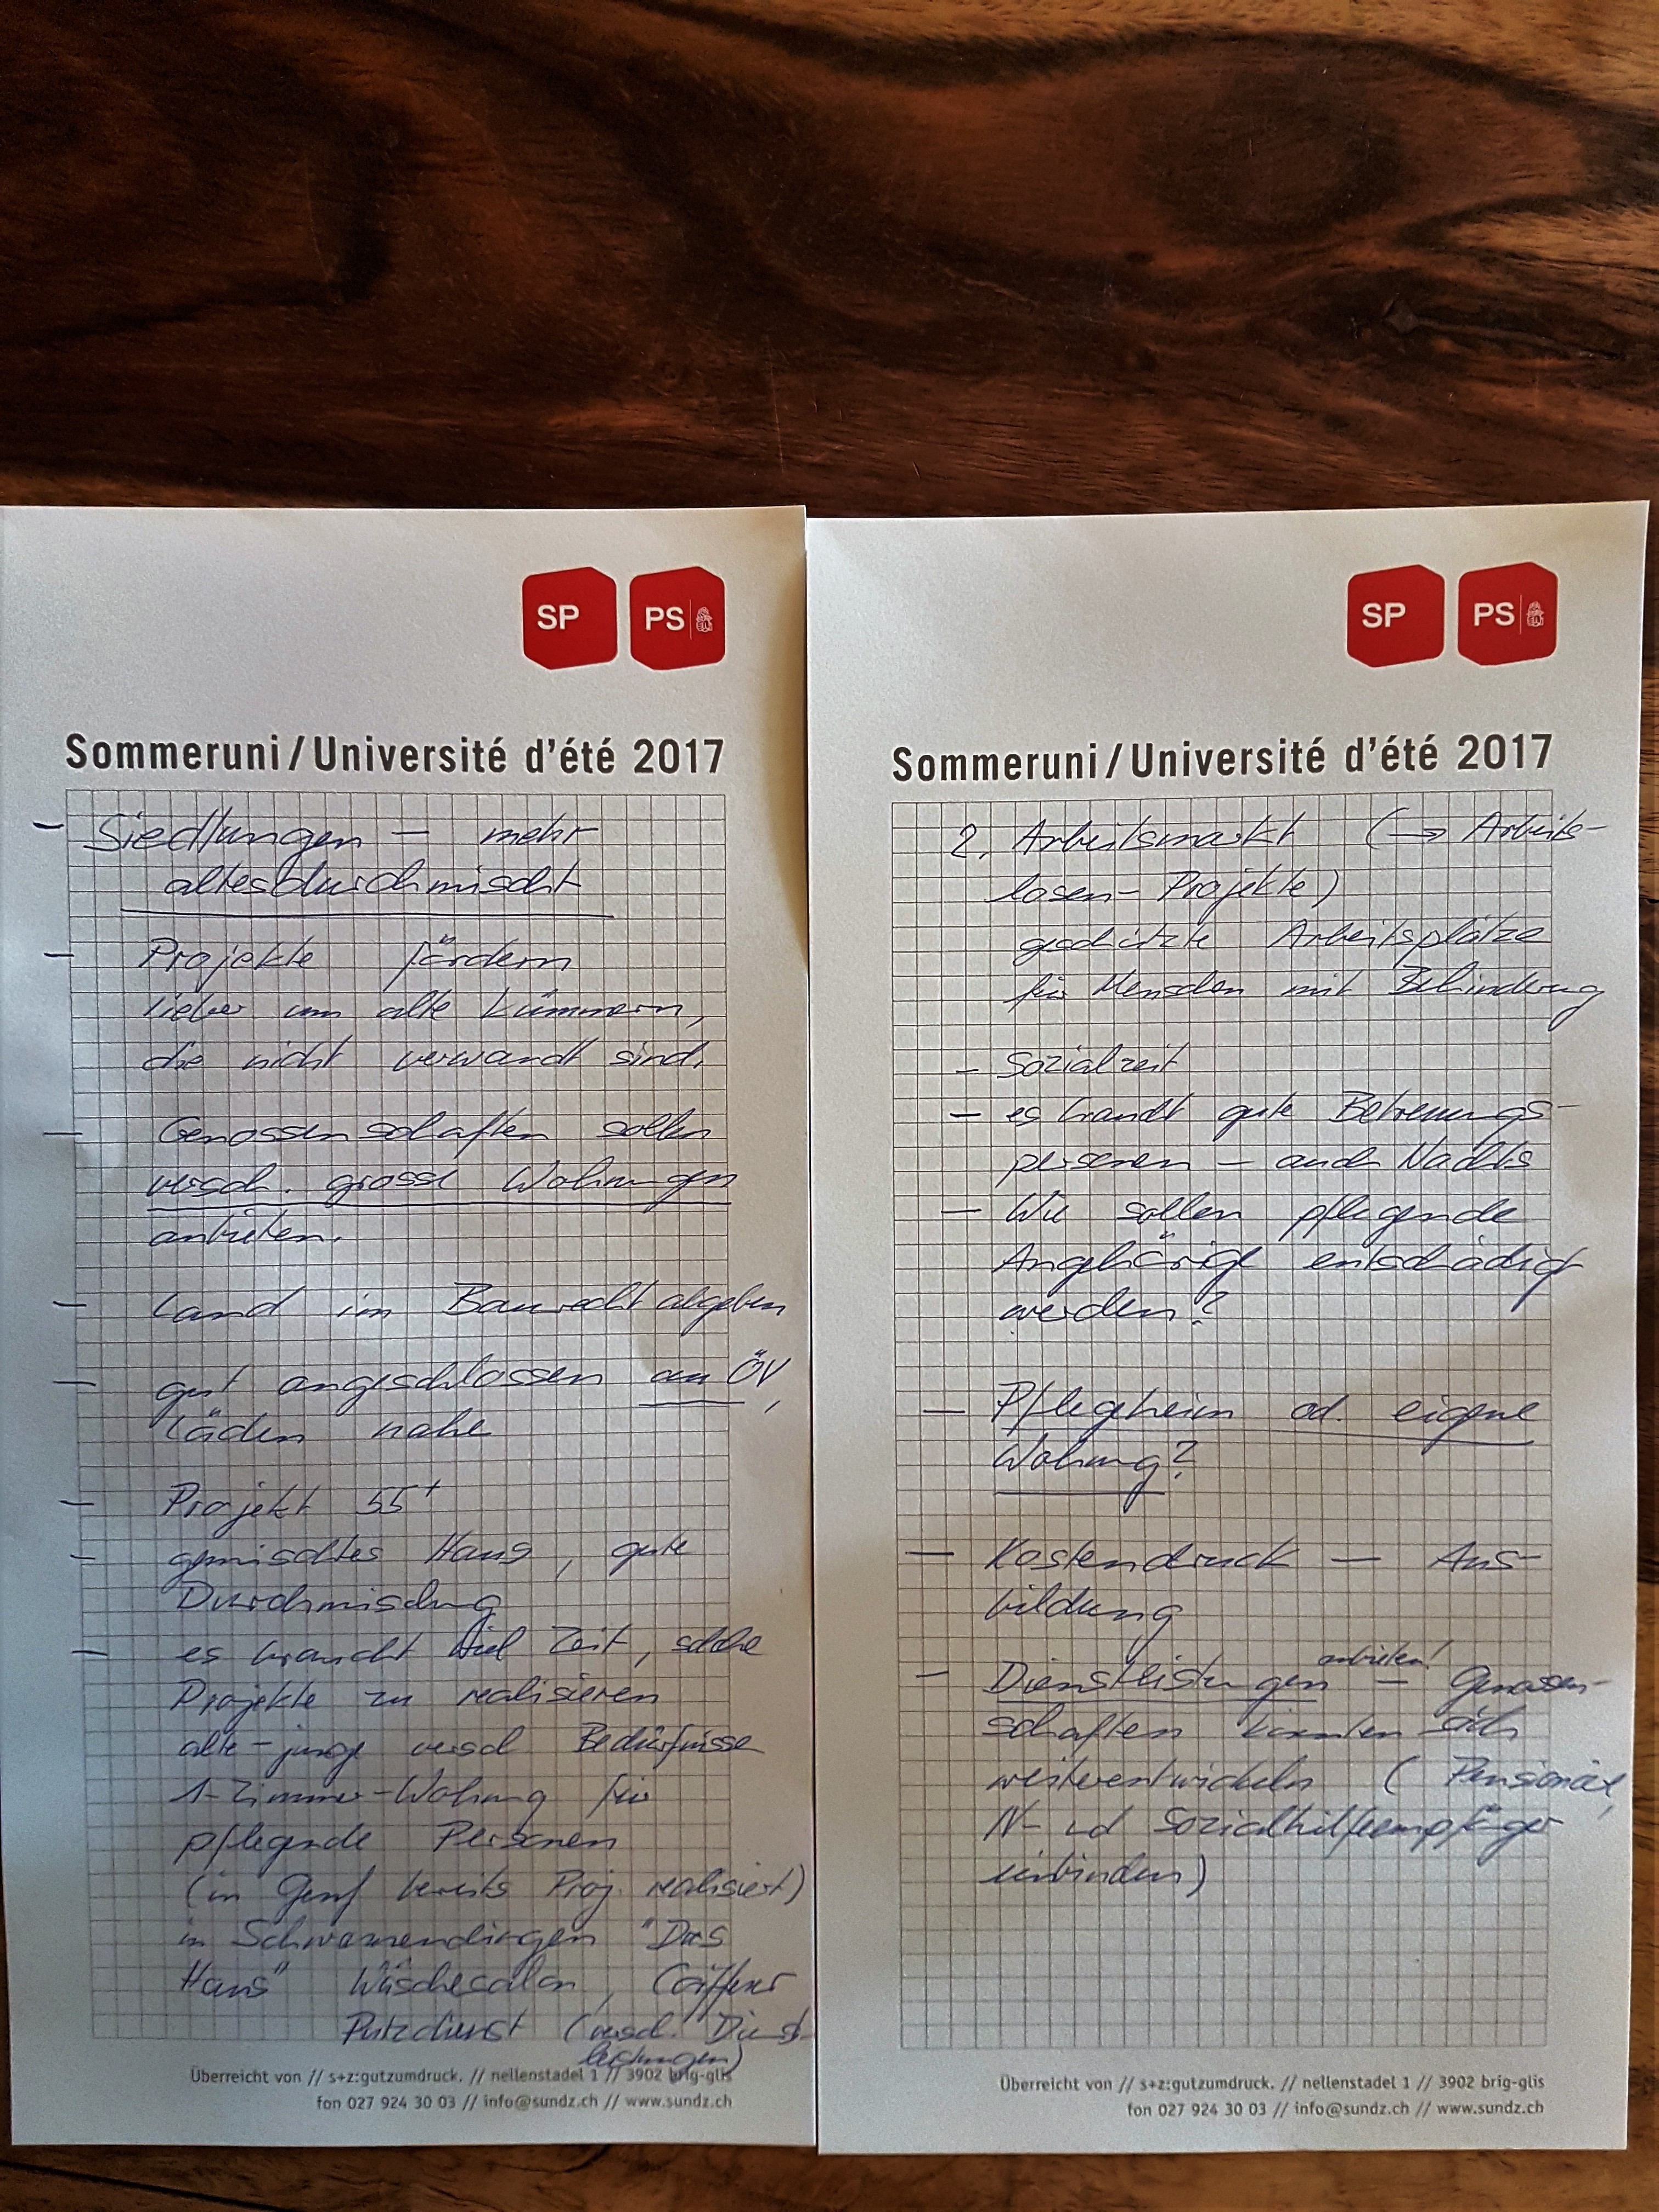 SP PS
Sommeruni / Université d'été 2017
– Siedlungen – mehr
altersdurchmischt
– Projekte fördern
lieber um alte kümmern,
die nicht verwandt sind.
– Genossenschaften sollen
versch. grosse Wohnungen
anbieten.
– Land im Baurecht abgeben
– gut angeschlossen an ÖV,
Läden nahe
– Projekt 55+
– gemischtes Haus, gute
Durchmischung
– es braucht viel Zeit, solche
Projekte zu realisieren
alte – junge versch. Bedürfnisse
1-Zimmer-Wohnung für
pflegende Personen
(in Genf bereits Proj. realisiert)
in Schwamendingen "Das
Haus" Wäschesalon, Coiffeur
Putzdienst (versch. Dienst-
leistungen)
Überreicht von // s+z:gutzumdruck. // nellenstadel 1 // 3902 brig-glis
fon 027 924 30 03 // info@sundz.ch // www.sundz.ch
SP PS
Sommeruni / Université d'été 2017
2. Arbeitsmarkt (→ Arbeits-
losen-Projekte)
geschützte Arbeitsplätze
für Menschen mit Behinderung
– Sozialzeit
– es braucht gute Betreuungs-
personen – auch Nachts
– Wie sollen pflegende
Angehörige entschädigt
werden?
– Pflegheim od. eigene
Wohnung?
– Kostendruck – Aus-
bildung
– Dienstleistungen anbieten! – Genossen-
schaften könnten sich
weiterentwickeln (Pensionäre,
IV- und Sozialhilfeempfänger
einbinden)
Überreicht von // s+z:gutzumdruck. // nellenstadel 1 // 3902 brig-glis
fon 027 924 30 03 // info@sundz.ch // www.sundz.ch